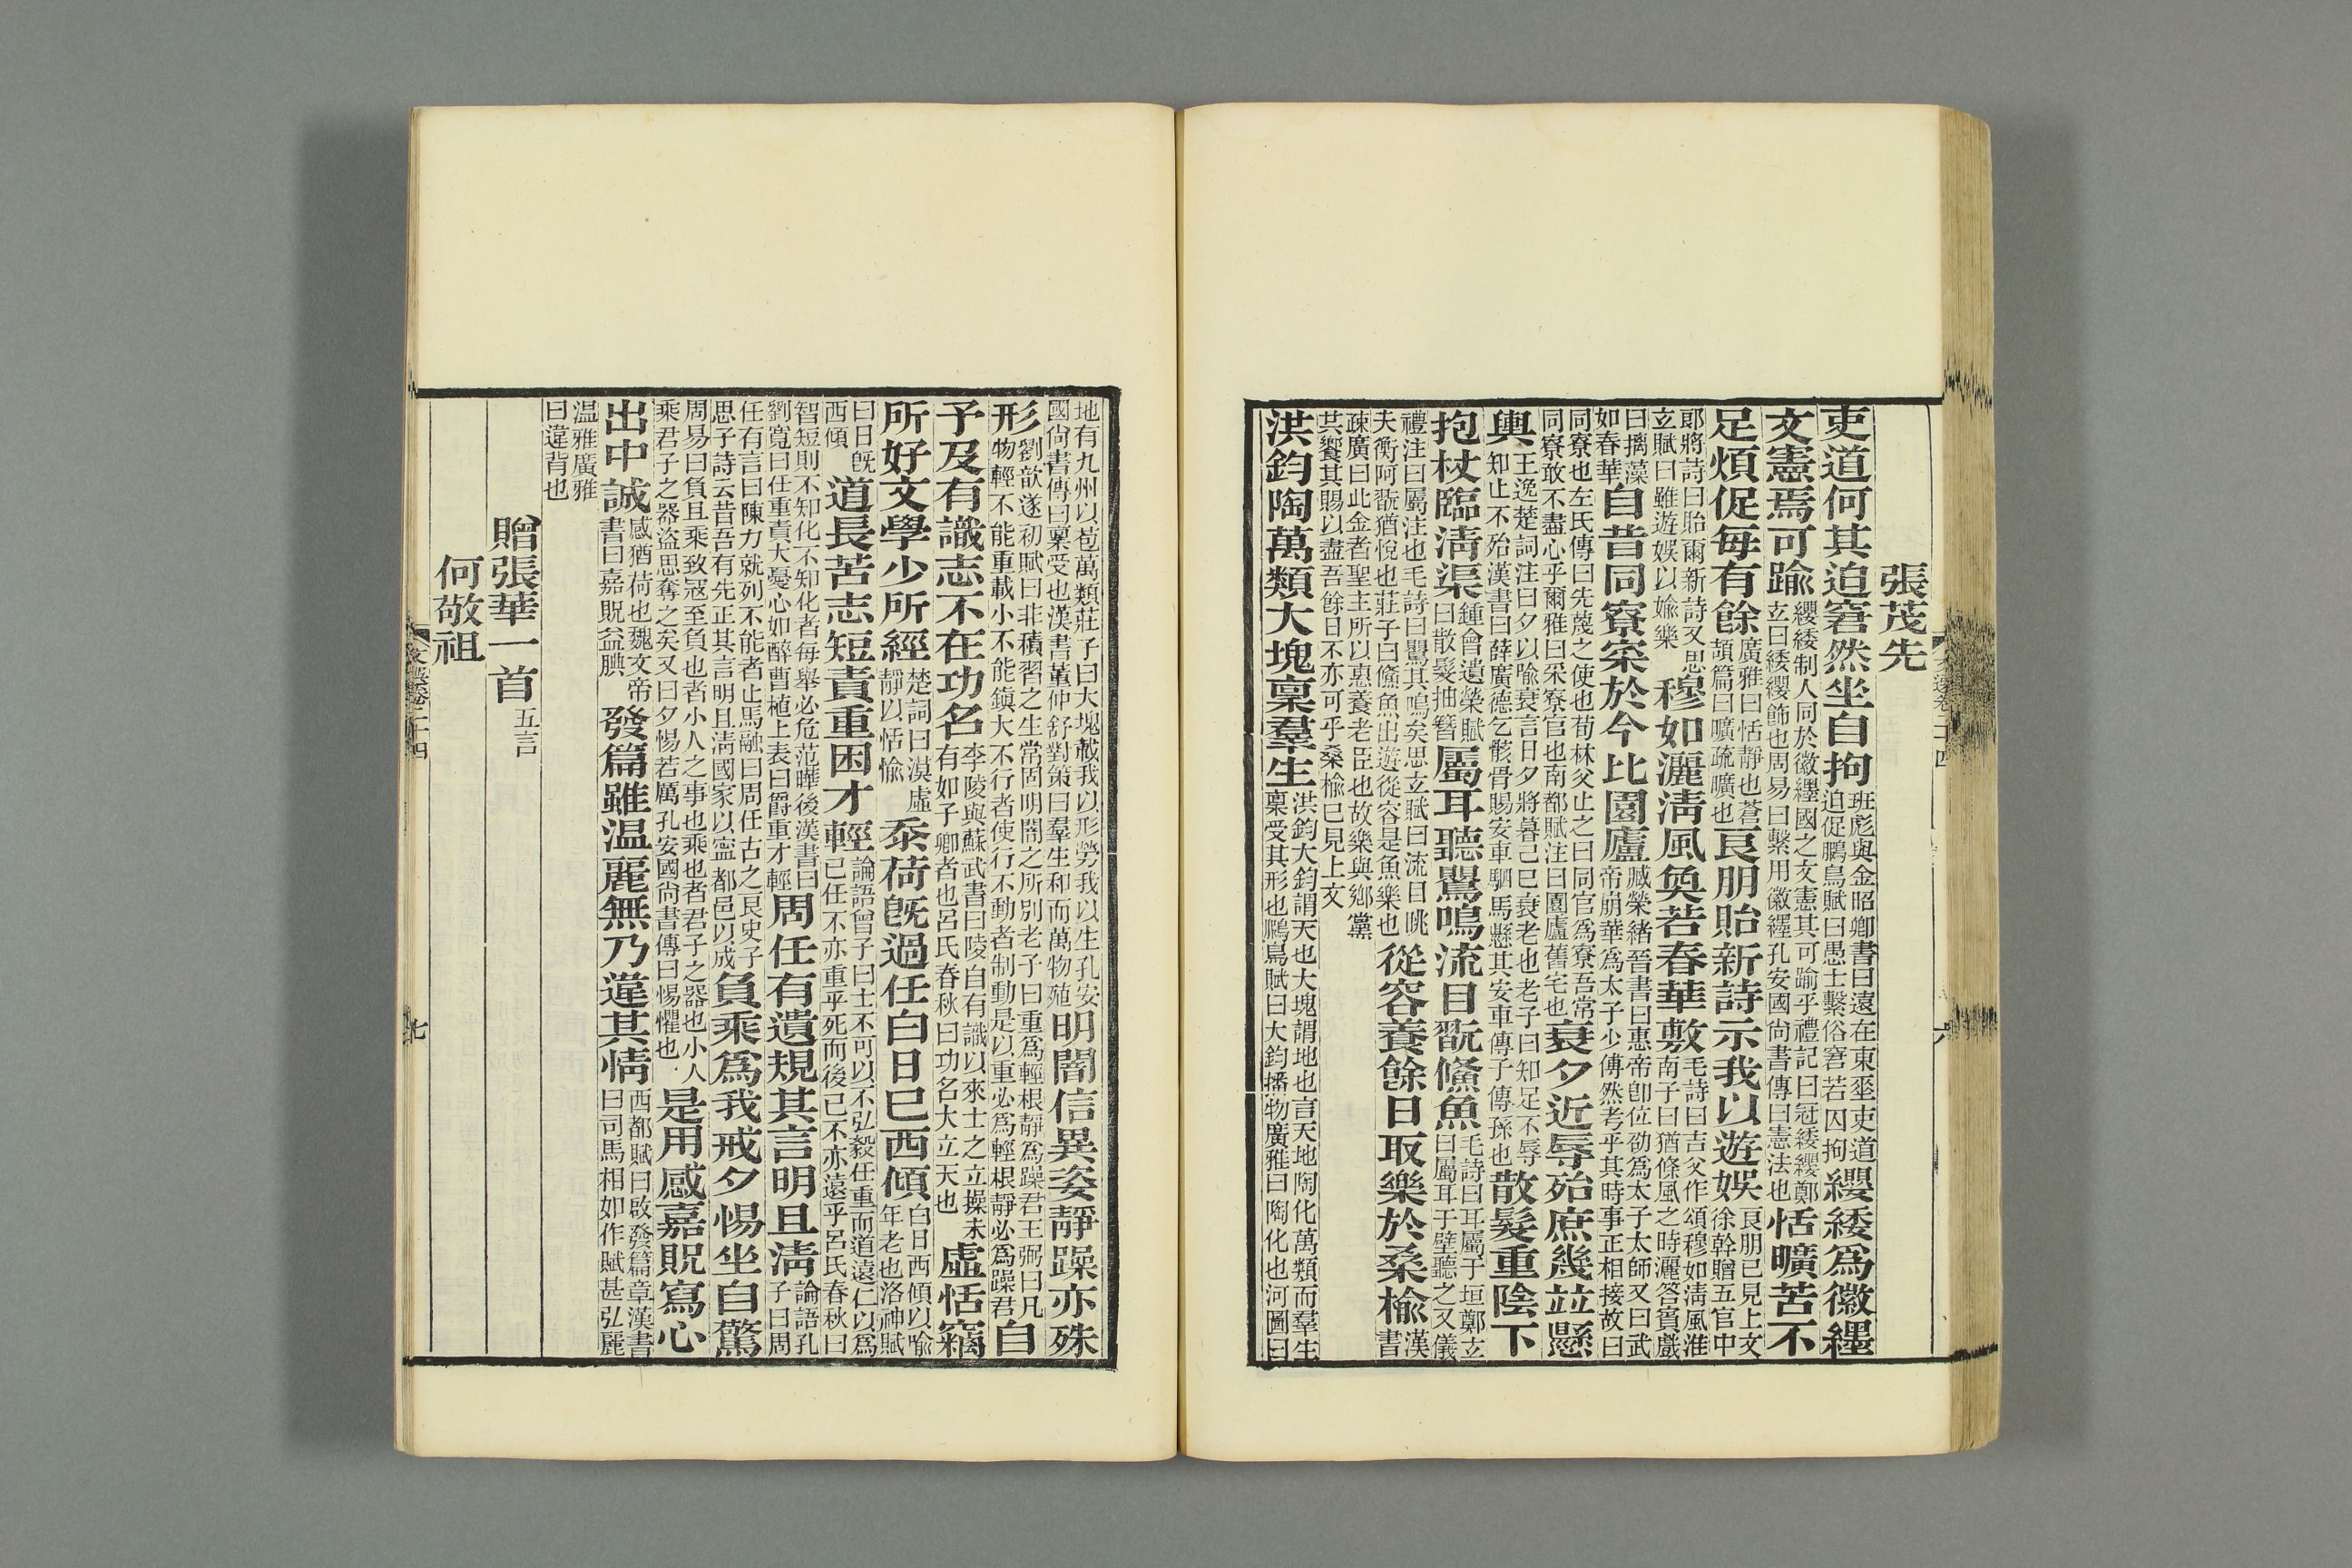 張茂先
吏道何其迫窘然坐自拘班彪與金昭卿書曰遠在東垂吏道迫促鵩鳥賦曰愚士繫俗窘若囚拘纓緌爲徽纆
文憲焉可踰纓緌制人同於徽纆國之文憲其可踰乎禮記曰冠緌纓鄭玄曰緌纓飾也周易曰繫用徽纆孔安國尙書傳曰憲法也恬曠苦不
足煩促每有餘廣雅曰恬靜也蒼頡篇曰曠疏曠也良朋貽新詩示我以遊娛良朋已見上文徐幹贈五官中
郎將詩曰貽爾新詩又思玄賦曰雖遊娛以媮樂穆如灑淸風奐若春華敷毛詩曰吉父作頌穆如淸風淮南子曰猶條風之時灑答賓戲
曰摛藻如春華自昔同寮寀於今比園廬臧榮緒晉書曰惠帝卽位劭爲太子太師又曰武帝崩華爲太子少傅然考乎其時事正相接故曰
同寮也左氏傳曰先蔑之使也荀林父止之曰同官爲寮吾常同寮敢不盡心乎爾雅曰采寮官也南都賦注曰園廬舊宅也衰夕近辱殆庶幾並懸
輿王逸楚詞注曰夕以喻衰言日夕將暮己已衰老也老子曰知足不辱知止不殆漢書曰薛廣德乞骸骨賜安車駟馬懸其安車傳子傳孫也散髮重陰下
抱杖臨淸渠鍾會遺榮賦曰散髮抽簪屬耳聽鸎鳴流目翫鯈魚毛詩曰耳屬于垣鄭玄曰屬耳于壁聽之又儀
禮注曰屬注也毛詩曰鸎其鳴矣思玄賦曰流目眺夫衡阿翫猶悅也莊子曰鯈魚出遊從容是魚樂也從容養餘日取樂於桑楡漢書
疎廣曰此金者聖主所以惠養老臣也故樂與鄉黨其饗其賜以盡吾餘日不亦可乎桑楡已見上文
洪鈞陶萬類大塊稟羣生洪鈞大鈞謂天也大塊謂地也言天地陶化萬類而羣生稟受其形也鵩鳥賦曰大鈞播物廣雅曰陶化也河圖曰
文選卷二十四
六
地有九州以苞萬類莊子曰大塊載我以形勞我以生孔安國尙書傳曰稟受也漢書董仲舒對策曰羣生和而萬物殖明闇信異姿靜躁亦殊
形劉歆遂初賦曰非積習之生常固明闇之所別老子曰重爲輕根靜爲躁君王弼曰凡物輕不能重載小不能鎭大不行者使行不動者制動是以重必爲輕根靜必爲躁君自
予及有識志不在功名李陵與蘇武書曰陵自有識以來士之立操未有如子卿者也呂氏春秋曰功名大立天也虛恬竊
所好文學少所經楚詞曰漠虛靜以恬愉忝荷旣過任白日已西傾白日西傾以喻年老也洛神賦
曰日旣西傾道長苦志短責重困才輕論語曾子曰士不可以不弘毅任重而道遠仁以爲己任不亦重乎死而後已不亦遠乎呂氏春秋曰
智短則不知化不知化者每舉必危范曄後漢書曰劉寬曰任重責大憂心如醉曹植上表曰爵重才輕周任有遺規其言明且淸論語孔子曰周
任有言曰陳力就列不能者止馬融曰周任古之良史子思子詩云昔吾有先正其言明且淸國家以寍都邑以成負乘爲我戒夕惕坐自驚
周易曰負且乘致寇至負也者小人之事也乘也者君子之器也小人乘君子之器盜思奪之矣又曰夕惕若厲孔安國尙書傳曰惕懼也是用感嘉貺寫心
出中誠感猶荷也魏文帝書曰嘉貺益腆發篇雖温麗無乃違其情西都賦曰啟發篇章漢書曰司馬相如作賦甚弘麗
温雅廣雅曰違背也
贈張華一首五言
何敬祖
文選卷二十四
七